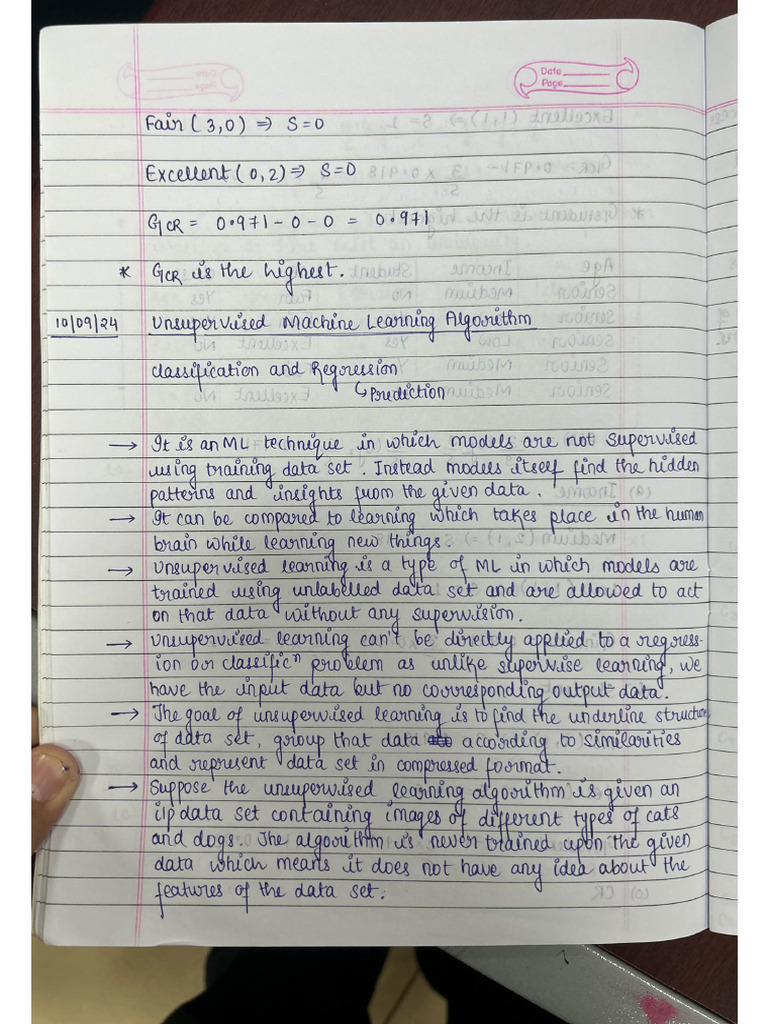 Date
Page
Fair (3,0) ⇒ S=0
Excellent (0,2) ⇒ S=0
GCR = 0.971 - 0 - 0 = 0.971
* GCR is the highest.
10/09/24 Unsupervised Machine Learning Algorithm
classification and Regression
↳ Prediction
→ It is an ML technique in which models are not supervised
using training data set. Instead models itself find the hidden
patterns and insights from the given data.
→ It can be compared to learning which takes place in the human
brain while learning new things.
→ Unsupervised learning is a type of ML in which models are
trained using unlabelled data set and are allowed to act
on that data without any supervision.
→ Unsupervised learning can't be directly applied to a regress-
ion or classificⁿ problem as unlike supervise learning, we
have the input data but no corresponding output data.
→ The goal of unsupervised learning is to find the underline structure
of data set, group that data according to similarities
and represent data set in compressed format.
→ Suppose the unsupervised learning algorithm is given an
i/p data set containing images of different types of cats
and dogs. The algorithm is never trained upon the given
data which means it does not have any idea about the
features of the data set.